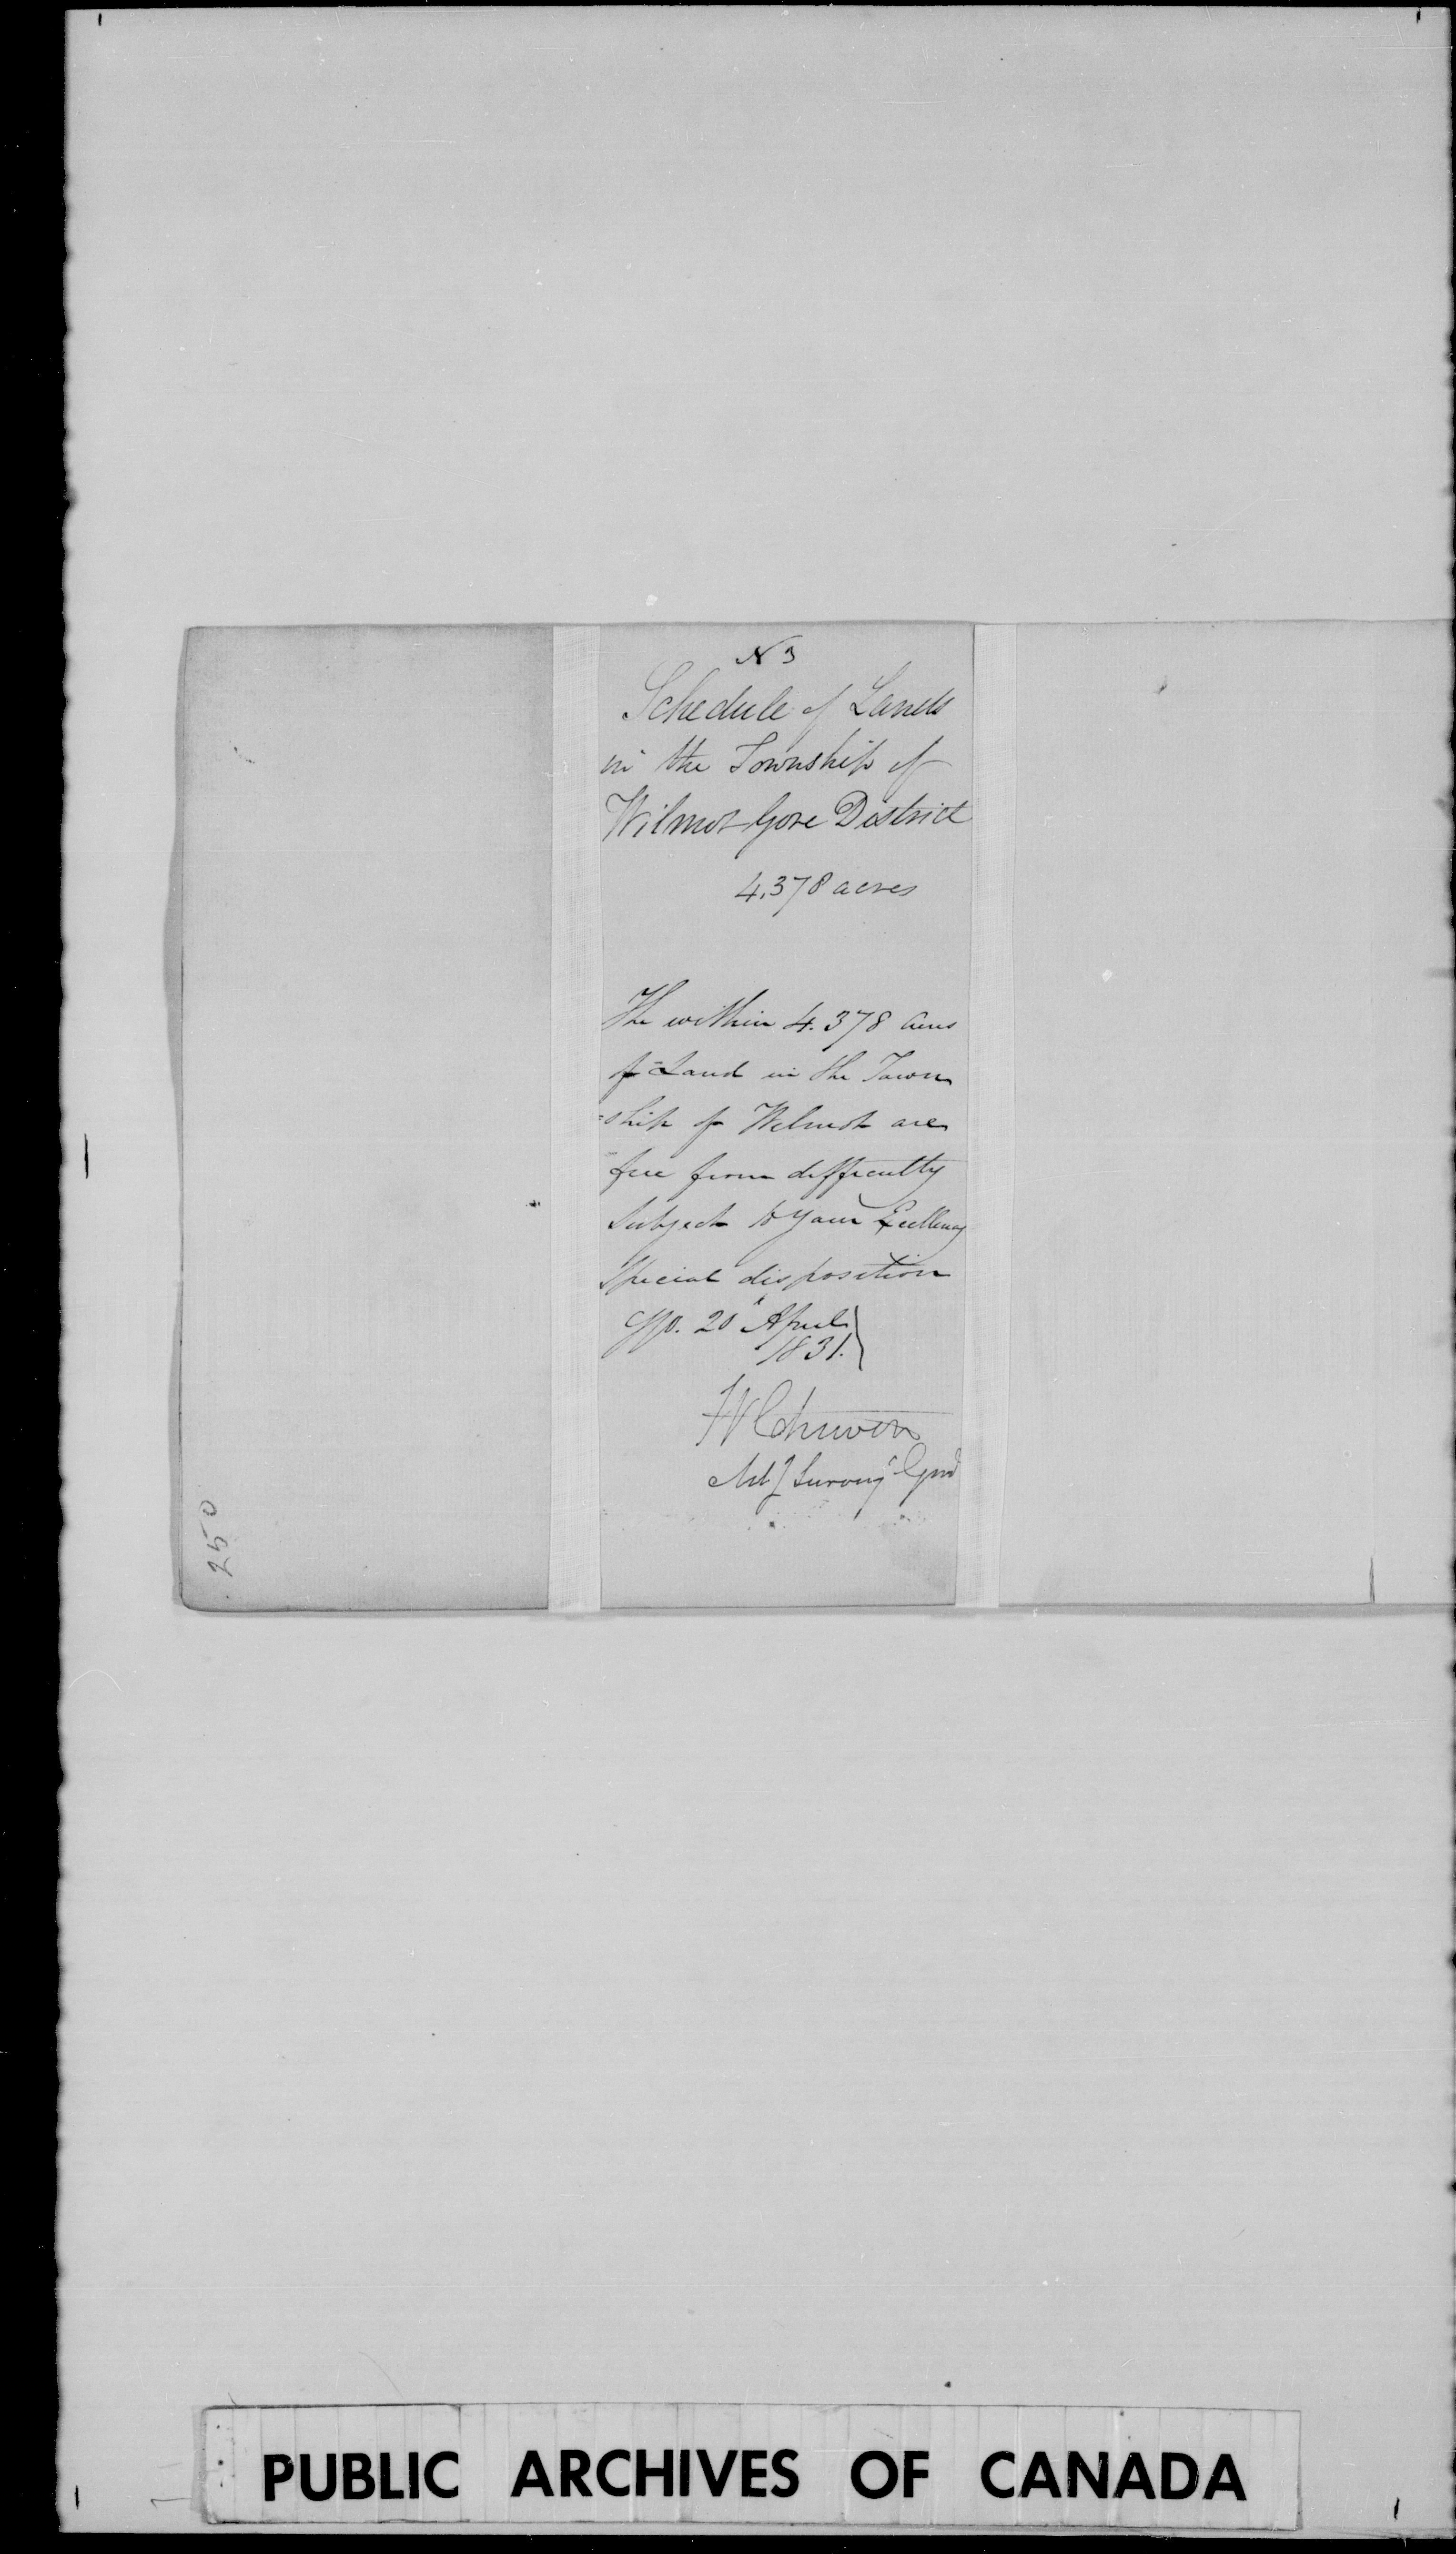 N 3
Schedule of Lands
in the Township of
Wilmot Gore District
4,378 acres
The within 4.378 acres
of Land in the Town
=ship of Wilmot are
free from difficulty
Subject to Your Excellency
Special disposition
20th April
1831.
W Chewett
Act g Survey r Genl
250
PUBLIC ARCHIVES OF CANADA